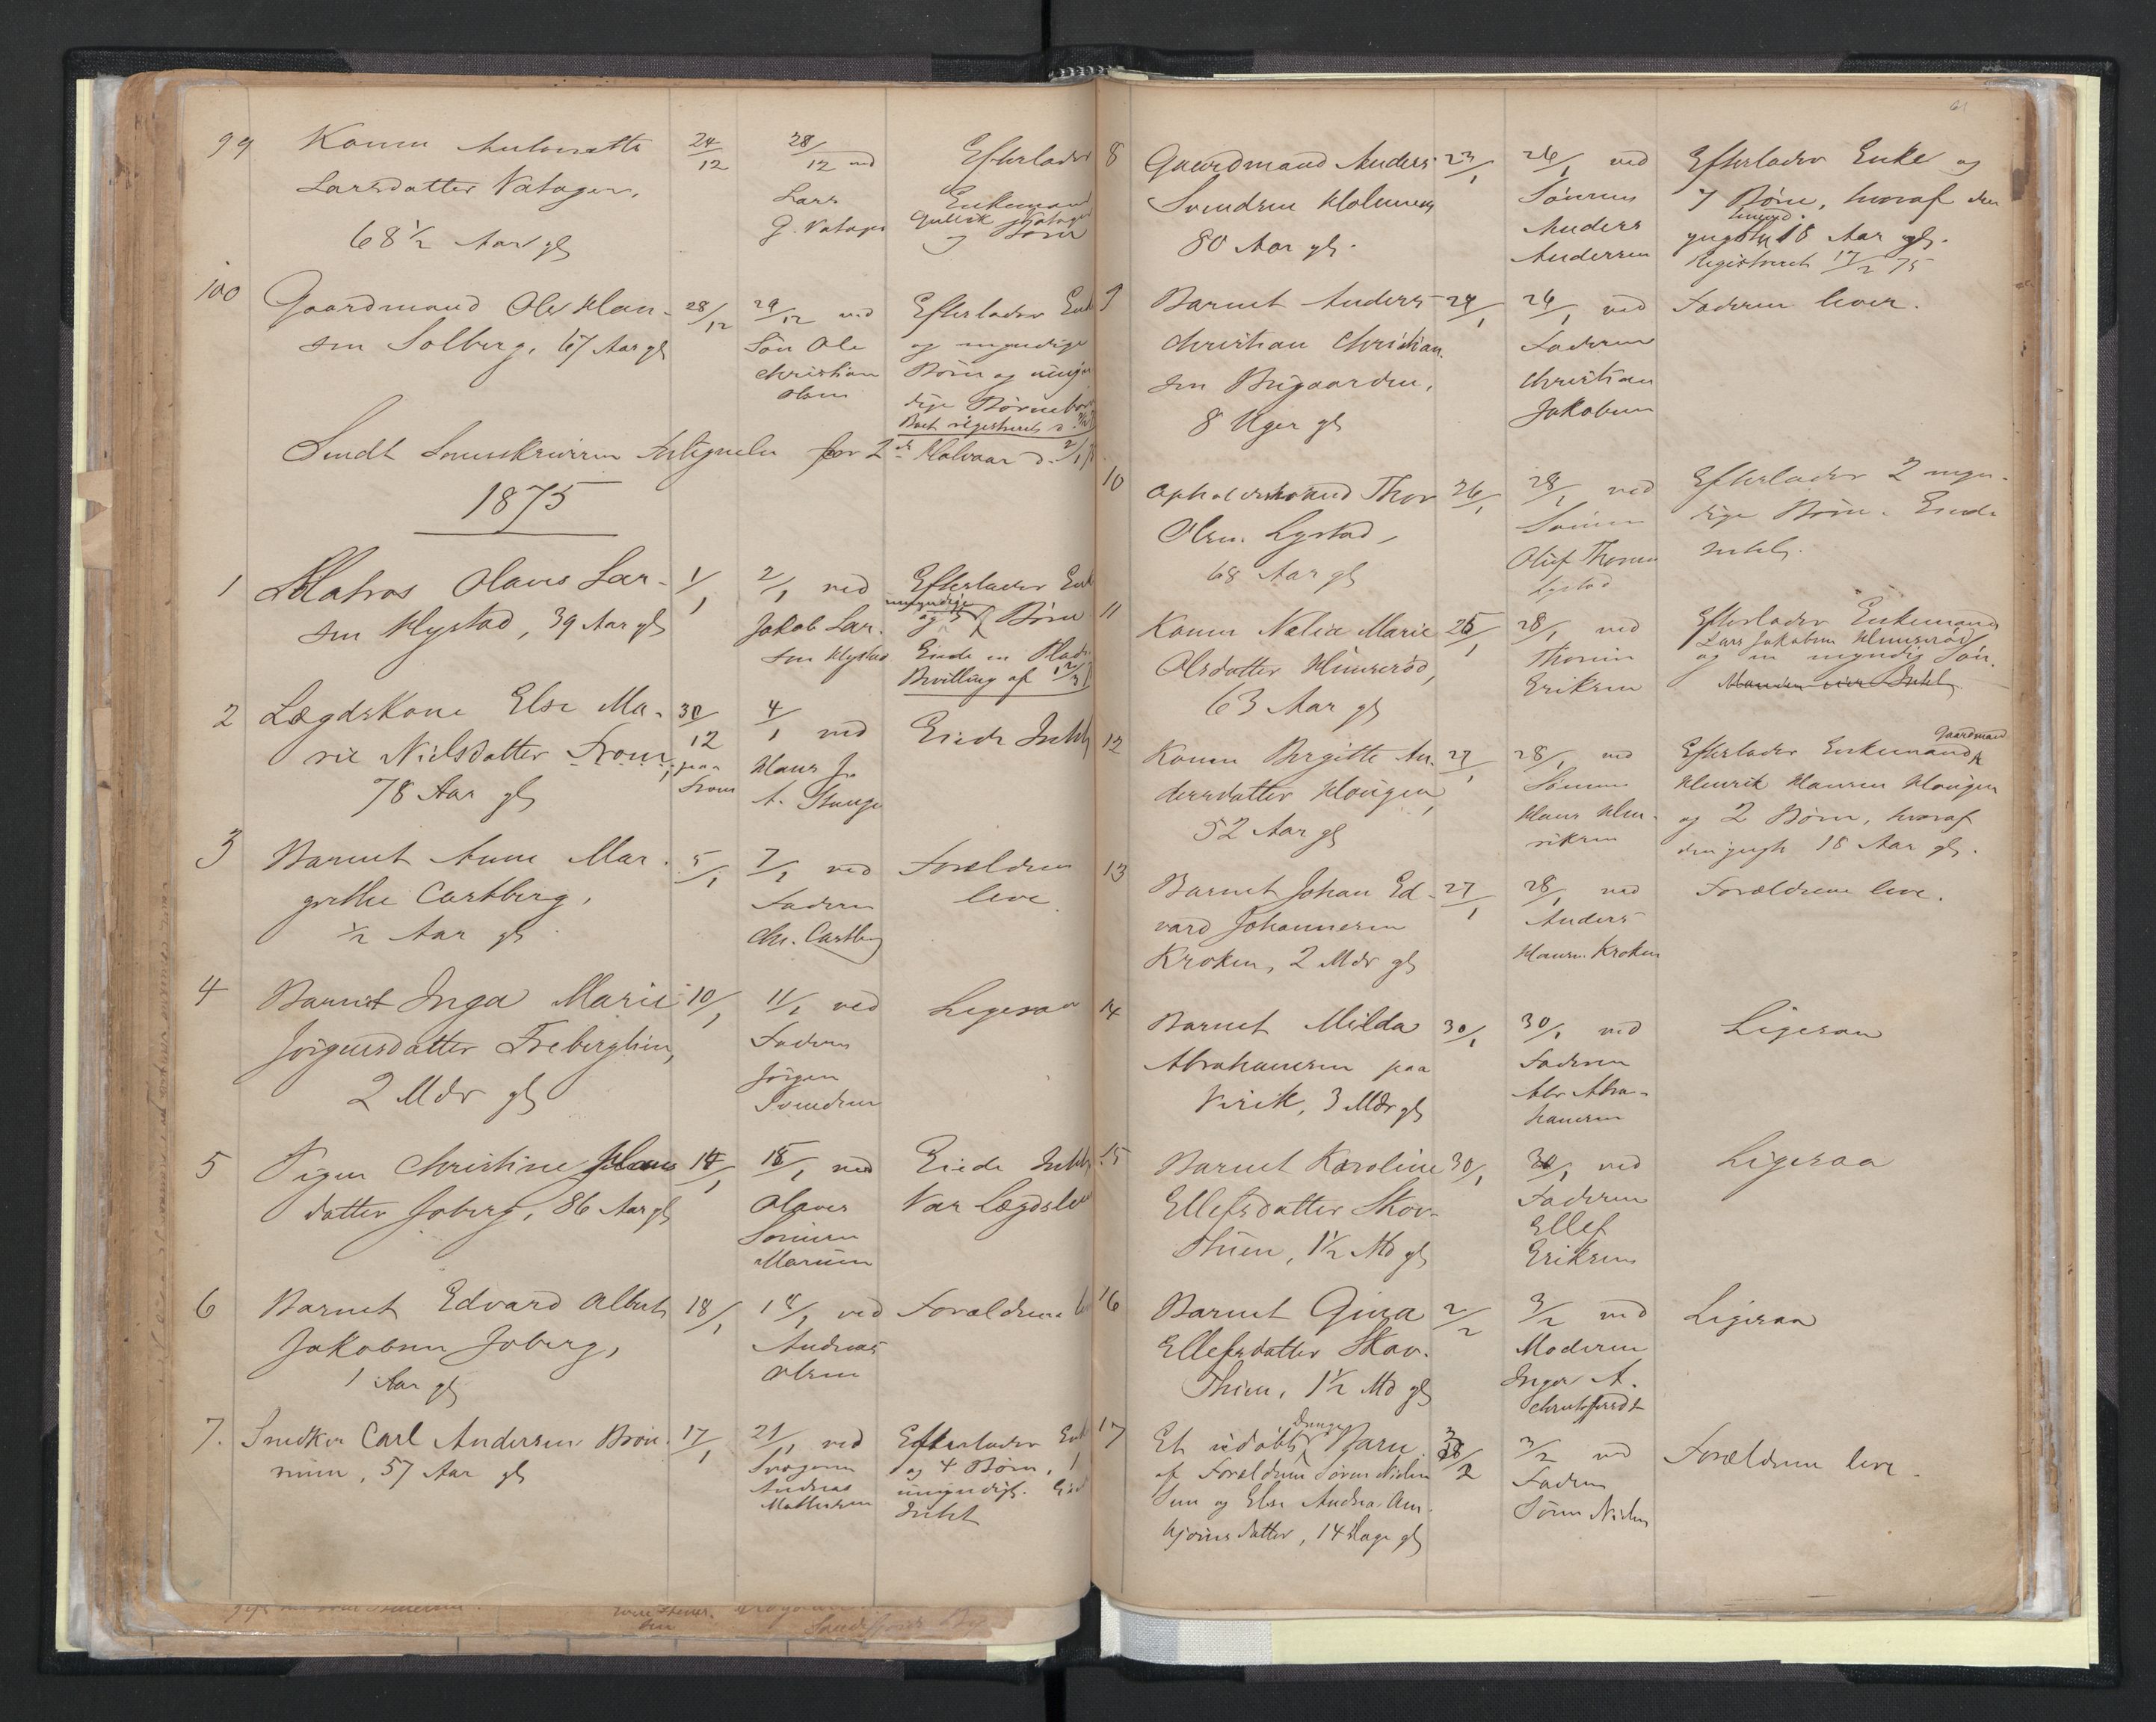 99 Konen Antonette 24/12 28/12 ved Efterlader
Larsdatter Vatager, Lars Enkemand
G. Vatager Gullik Vatager
68 1/2 Aar gl og Børn
100 Gaardmand Ole Han- 28/12 29/12 ved Efterlader Enk
sen Solberg, 67 Aar gl Søn Ole og myndige
Christian Børn og umyn
Olsen dige Børnebørn
Boet registreret d.
Sendt Sorenskriveren Listen for 2det Halvaar d. 2/1
1875
1 Matros Olaus Lar- 1/1 2/1 ved Efterlader Enk
umyndige
sen Hystad, 39 Aar gl Jakob Lar- og 3 Børn
sen Hystad Eiede en Plads
Bevilling af
2 Lægdskone Else Ma- 30/12 4/1 ved Eiede Intet
rie Nielsdatter From, paa Hans J.
78 Aar gl From A. Stange
3 Barnet Anne Mar- 5/1 7/1 ved Forældrene
grethe Castberg, Faderen leve
1/2 Aar gl Chr. Castberg
4 Barnet Inga Marie 10/1 11/1 ved Ligesaa
Jørgensdatter Freberghin, Faderen
Jørgen
2 Mdr gl Svendsen
5 Pigen Christine Hans 14/1 18/1 ved Eiede Intet
datter Joberg, 86 Aar gl Olaves Var Lægdslem
Sørensen
6 Barnet Edvard Albert 18/1 18/1 ved Forældrene
Jakobsen Joberg, Andreas
1 Aar gl Olsen
7. Snedker Carl Andersen Brøn- 17/1 21/1 ved Efterlader Enk
num, 57 Aar gl Svogeren og 4 Børn, 1
Andreas umyndigt. Eied
Mathisen Intet
61
8 Gaardmand Anders 23/1 26/1 ved Efterlader Enke og
Svendsen Holmen Sønnen 7 Børn, hvoraf den
80 Aar gl. Anders yngste 18 Aar gl.
Andersen Registreret 17/2 75
9 Barnet Anders 24/1 26/1 ved Faderen lever.
Christian Christian- Faderen
sen Bugaarden, Christian
8 Uger gl Jakobsen
10 Opholdsmand Thor 26/1 28/1 ved Efterlader 2 myn-
Olsen Lystad, Sønnen dige Børn. Eiede
68 Aar gl Oluf Thorsen Intet.
Lystad
11 Konen Nelia Marie 25/1 28/1 ved Efterlader Enkemand
Lars Jakobsen Hunserød
Olsdatter Hunserød, Thorvin og en myndig Søn.
Eriksen Manden eier Intet
63 Aar gl
Gaardmand
12 Konen Birgitte An- 27/1 28/1 ved Efterlader Enkemand
dersdatter Haugen, Sønnen Henrik Hansen Haugen
52 Aar gl Hans Hen- og 2 Børn, hvoraf
riksen den yngste 18 Aar gl.
13 Barnet Johan Ed- 27/1 28/1 ved Forældrene leve.
vard Johannesen Anders
Kroken, 2 Mdr gl Hansen Kroken
14 Barnet Milda 30/1 30/1 ved Ligesaa
Abrahamsen paa Faderen
Virik, 3 Mdr gl Abr Abra-
hamsen
15 Barnet Karoline 30/1 30/1 ved Ligesaa
Ellefsdatter Skov- Faderen
Thuen, 1 1/2 Md gl Ellef
Eriksen
16 Barnet Gina 2/2 3/2 ved Ligesaa
Ellefsdatter Skov- Moderen
Thuen, 1 1/2 Md gl Inger A.
Christoffersdt
Drenge
17 Et udøbt Barn 3/2 3/2 ved Forældrene leve.
af Forældrene Søren Nielsen Faderen
Sem og Else Andrea Am- Søren Nielsen
bjørnsdatter, 14 Dage gl